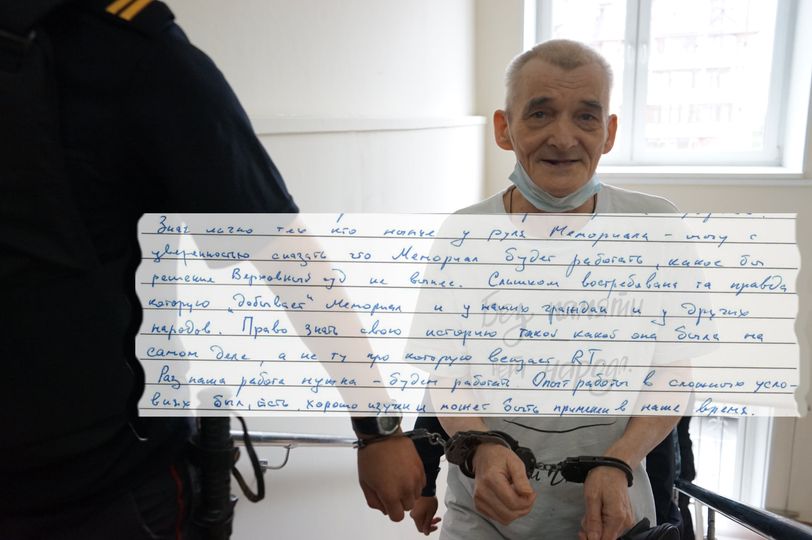 Зная лично тех кто нынче у руля Мемориала – могу с
уверенностью сказать что Мемориал будет работать, какое бы
решение Верховный суд не вынес. Слишком востребована та правда
которую „добывает" Мемориал и у наших граждан и у других
народов. Право знать свою историю такой какой она была на
самом деле, а не ту про которую вещает RT.
Раз наша работа нужна – будем работать. Опыт работы в сложных усло-
виях был, есть, хорошо изучен и может быть применен в наше время.
Без памяти
нет народа.